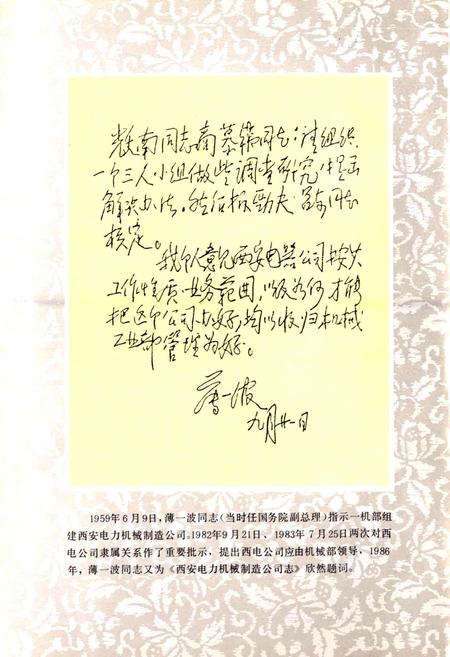 光南同志商慕葆同志：请组织
一个三人小组做些调查研究提出
解决办法。然后报劲夫 同志
核定。
我个人意见西安电器公司按其
工作性质业务范围，以及为何才能
把这个公司办好，均以收归机械
工业部管理为好。
薄一波
九月廿一日
1959年6月9日，薄一波同志(当时任国务院副总理)指示一机部组
建西安电力机械制造公司。1982年9月21日、1983年7月25日两次对西
电公司隶属关系作了重要批示，提出西电公司应由机械部领导，1986
年，薄一波同志又为《西安电力机械制造公司志》欣然题词。